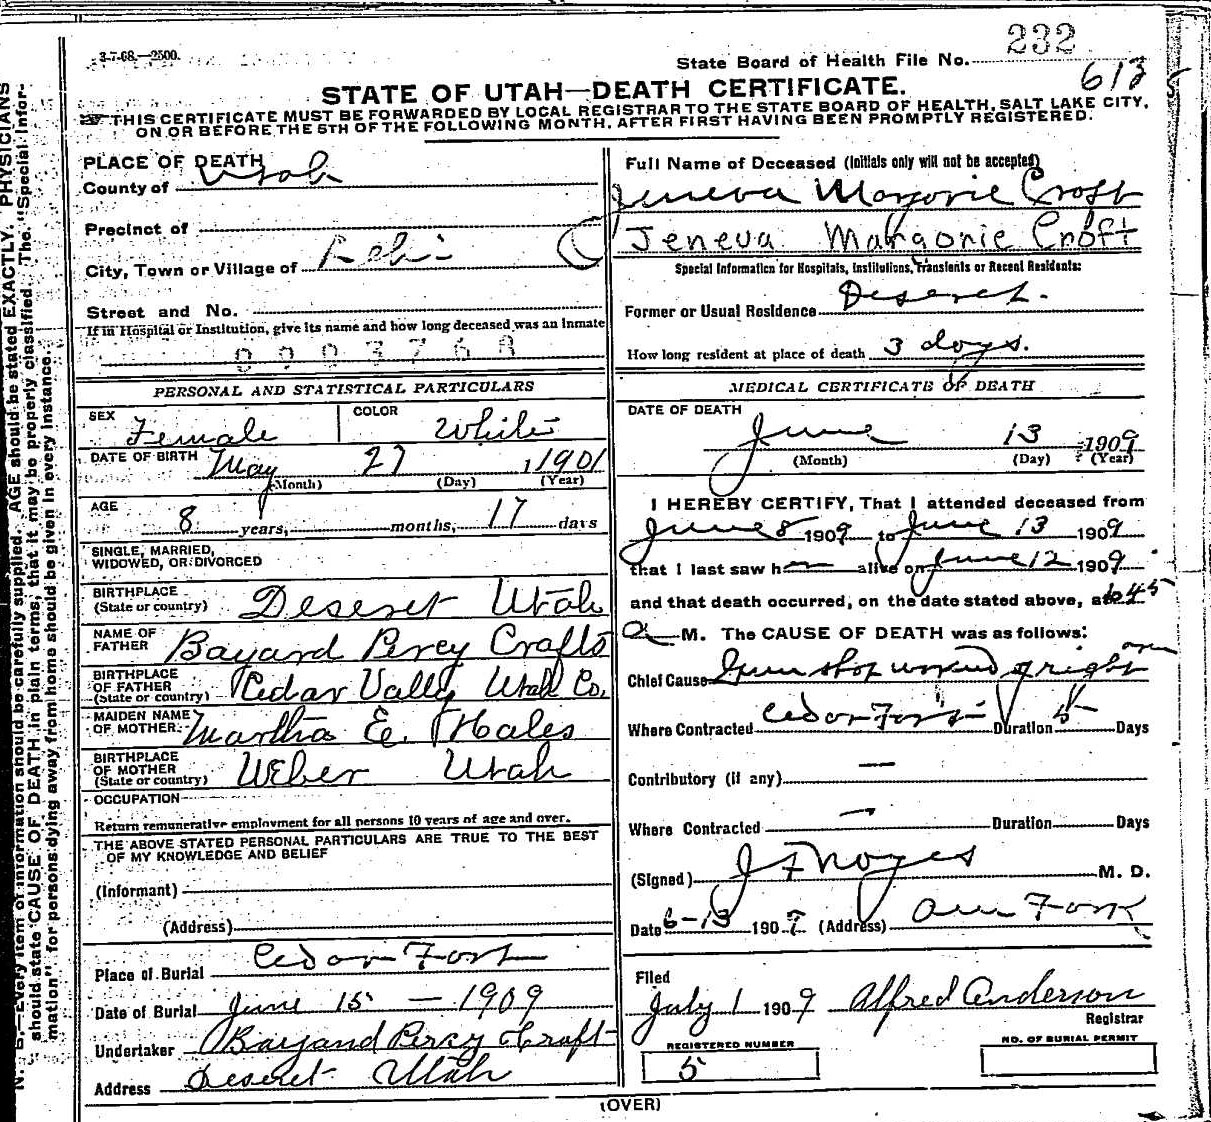 3-7-08.—2500.
232
State Board of Health File No.
613
STATE OF UTAH—DEATH CERTIFICATE.
THIS CERTIFICATE MUST BE FORWARDED BY LOCAL REGISTRAR TO THE STATE BOARD OF HEALTH, SALT LAKE CITY,
ON OR BEFORE THE 5TH OF THE FOLLOWING MONTH, AFTER FIRST HAVING BEEN PROMPTLY REGISTERED.
PLACE OF DEATH
County of Utah
Precinct of
City, Town or Village of Lehi
Street and No.
If in Hospital or Institution, give its name and how long deceased was an inmate
0003768
PERSONAL AND STATISTICAL PARTICULARS
SEX Female COLOR White
DATE OF BIRTH May 27, 1901
(Month) (Day) (Year)
AGE 8 years, months, 17 days
SINGLE, MARRIED,
WIDOWED, OR DIVORCED
BIRTHPLACE
(State or country) Deseret Utah
NAME OF
FATHER Bayard Percy Crafts
BIRTHPLACE
OF FATHER
(State or country) Cedar Vally Utah Co.
MAIDEN NAME
OF MOTHER Martha E. Hales
BIRTHPLACE
OF MOTHER
(State or country) Weber Utah
OCCUPATION
Return remunerative employment for all persons 10 years of age and over.
THE ABOVE STATED PERSONAL PARTICULARS ARE TRUE TO THE BEST
OF MY KNOWLEDGE AND BELIEF
(Informant)
(Address)
Place of Burial Cedar Fort
Date of Burial June 15 — 1909
Undertaker Bayand Percy Craft
Address Deseret Utah
Full Name of Deceased (Initials only will not be accepted)
Jeneva Marjorie Croft
Jeneva Margorie Croft
Special Information for Hospitals, Institutions, Transients or Recent Residents:
Former or Usual Residence Deseret.
How long resident at place of death 3 days.
MEDICAL CERTIFICATE OF DEATH
DATE OF DEATH
June 13 1909
(Month) (Day) (Year)
I HEREBY CERTIFY, That I attended deceased from
June 8 1909 to June 13 1909
that I last saw h alive on June 12 1909
and that death occurred, on the date stated above, at 6 45
a M. The CAUSE OF DEATH was as follows:
Chief Cause Gun shot wound of right arm
Where Contracted Cedar Fort Duration 5 Days
Contributory (if any) —
Where Contracted — Duration Days
(Signed) J F Noyes M. D.
Date 6-13 1909 (Address) Am Fork
Filed
July 1 1909 Alfred Anderson
Registrar
REGISTERED NUMBER
5
NO. OF BURIAL PERMIT
(OVER)
N. B.—Every item of information should be carefully supplied. AGE should be stated EXACTLY. PHYSICIANS
should state CAUSE OF DEATH in plain terms, that it may be properly classified. The "Special Infor-
mation" for persons dying away from home should be given in every instance.